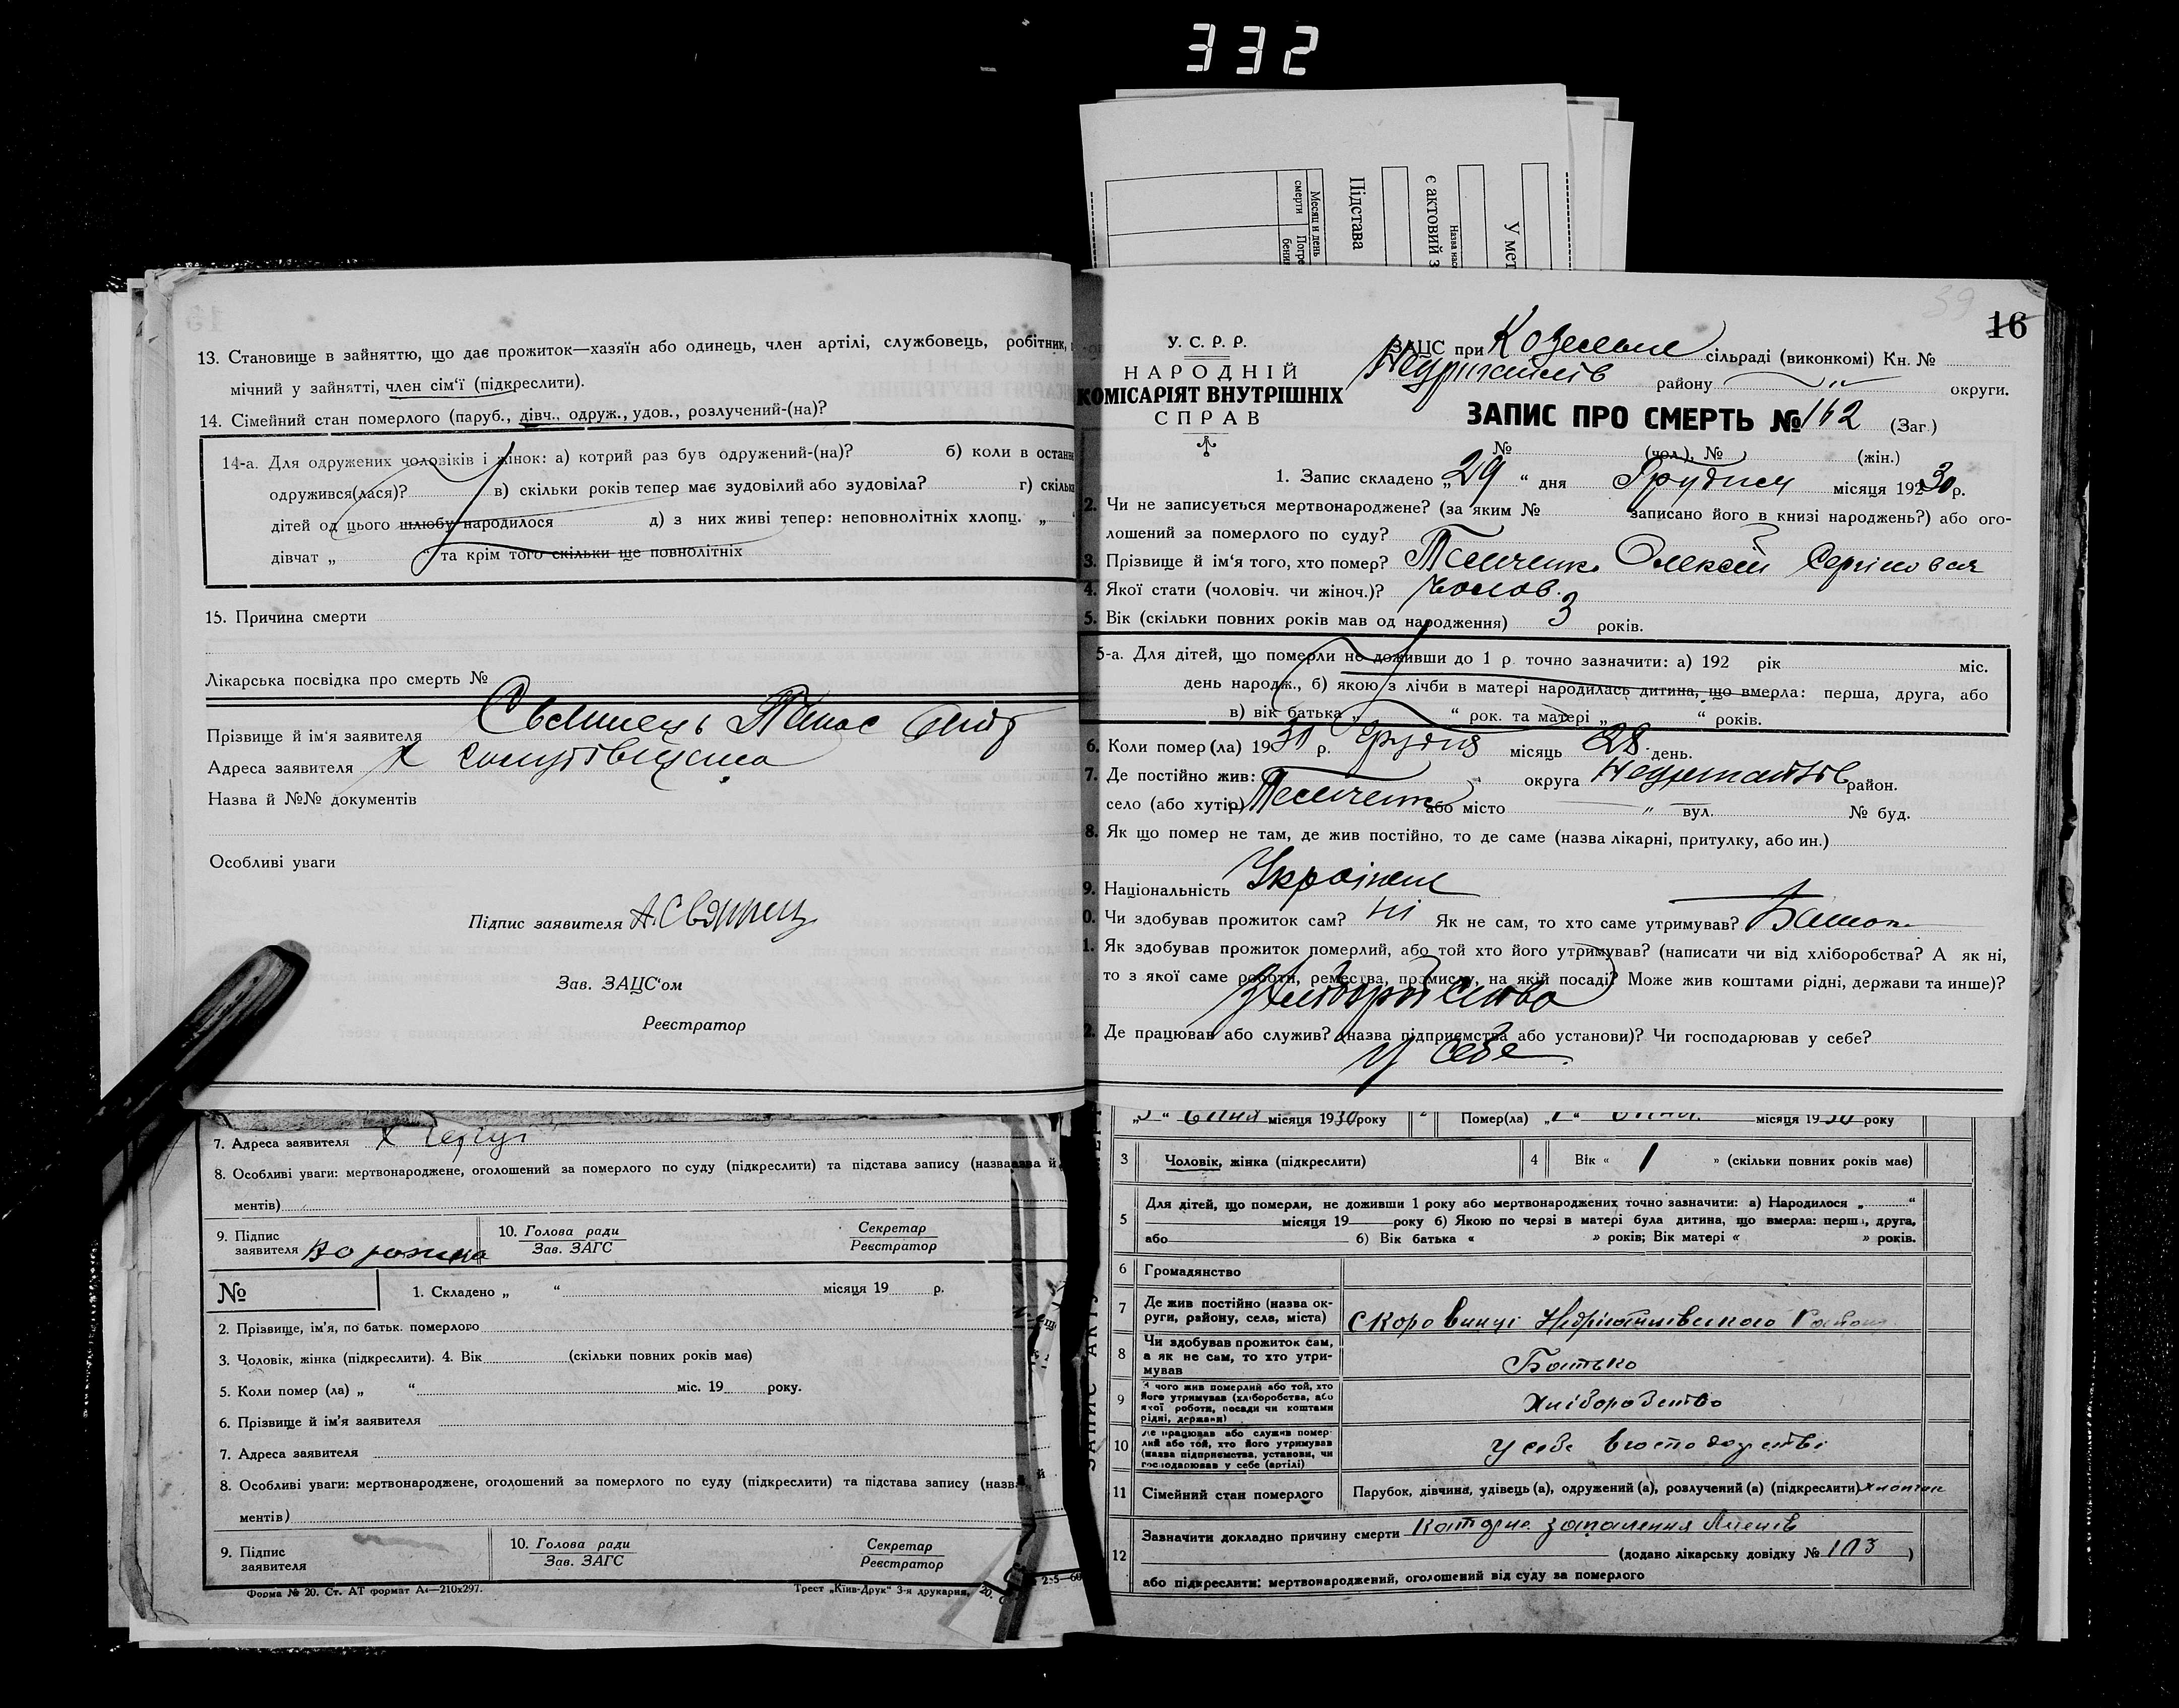 332
Месяц и день
смерти
Погре
бения
Підстава
є актовий з
Назва нас
У мет
13. Становище в зайняттю, що дає прожиток—хазяїн або одинець, член артілі, службовець, робітник,
мічний у зайнятті, член сім'ї (підкреслити).
14. Сімейний стан померлого (паруб., дівч., одруж., удов., розлучений-(на)?
14-а. Для одружених чоловіків і жінок: а) котрий раз був одружений-(на)? б) коли в останн
одружився(лася)? в) скільки років тепер має зудовілий або зудовіла? г) скільк
дітей од цього шлюбу народилося д) з них живі тепер: неповнолітніх хлопц. „
дівчат „ та крім того скільки ще повнолітніх
15. Причина смерти
Лікарська посвідка про смерть №
Прізвище й ім'я заявителя
Адреса заявителя х
Назва й №№ документів
Особливі уваги
Підпис заявителя
Зав. ЗАЦС'ом
Реєстратор
39
16
У. С. Р. Р.
НАРОДНІЙ
КОМІСАРІЯТ ВНУТРІШНІХ
СПРАВ
ЗАЦС при сільраді (виконкомі) Кн. №
району „ округи.
ЗАПИС ПРО СМЕРТЬ № 162 (Заг.)
№ (чол.), № (жін.)
1. Запис складено „29 “ дня Грудня місяця 1930 р.
2. Чи не записується мертвонароджене? (за яким № записано його в книзі народжень?) або ого-
лошений за померлого по суду?
3. Прізвище й ім'я того, хто помер? Олексій
4. Якої стати (чоловіч. чи жіноч.)? Чолов.
5. Вік (скільки повних років мав од народження) 3 років.
5-а. Для дітей, що померли не доживши до 1 р. точно зазначити: а) 192 рік міс.
день народж., б) якою з лічби в матері народилась дитина, що вмерла: перша, друга, або
в) вік батька „ “ рок. та матері „ “ років.
6. Коли помер (ла) 1930 р. Грудня місяць 28 день.
7. Де постійно жив: округа район.
село (або хутір) або місто „ вул. № буд.
8. Як що помер не там, де жив постійно, то де саме (назва лікарні, притулку, або ин.)
9. Національність Українец
0. Чи здобував прожиток сам? Ні Як не сам, то хто саме утримував? Батько
1. Як здобував прожиток померлий, або той хто його утримував? (написати чи від хліборобства? А як ні,
то з якої саме роботи, ремества, промислу, на якій посаді? Може жив коштами рідні, держави та инше)?
Хліборобство
2. Де працював або служив? (назва підприємства або установи)? Чи господарював у себе?
У себе
7. Адреса заявителя х
8. Особливі уваги: мертвонароджене, оголошений за померлого по суду (підкреслити) та підстава запису (назва й
ментів)
9. Підпис
заявителя
10. Голова ради
Зав. ЗАГС
Секретар
Реєстратор
№
1. Складено „ “ місяця 19 р.
2. Прізвище, ім'я, по батьк. померлого
3. Чоловік, жінка (підкреслити). 4. Вік (скільки повних років має)
5. Коли помер (ла) „ “ міс. 19 року.
6. Прізвище й ім'я заявителя
7. Адреса заявителя
8. Особливі уваги: мертвонароджене, оголошений за померлого по суду (підкреслити) та підстава запису (назва й
ментів)
9. Підпис
заявителя
10. Голова ради
Зав. ЗАГС
Секретар
Реєстратор
Форма № 20. Ст. АТ формат А4—210х297. Трест „Київ-Друк“ 3-я друкарня,
місяця 1930 року 2 Помер(ла) місяця 1930 року
3 Чоловік, жінка (підкреслити) 4 Вік « 1 » (скільки повних років має)
5 Для дітей, що померли, не доживши 1 року або мертвонароджених точно зазначити: а) Народилося „ “
місяця 19 року б) Якою по черзі в матері була дитина, що вмерла: перша, друга,
або б) Вік батька « » років; Вік матері « » років.
6 Громадянство
7 Де жив постійно (назва ок-
руги, району, села, міста)
8 Чи здобував прожиток сам,
а як не сам, то хто утри-
мував
Батько
9 З чого жив померлий або той, хто
його утримував (хліборобства, або
якої роботи, посади чи коштами
рідні, держави)
Хліборобство
10 Де працював або служив помер-
лий або той, хто його утримував
(назва підприємства, установи, чи
господарював у себе (артілі)
У себе в господарстві
11 Сімейний стан померлого Парубок, дівчина, удівець (а), одружений (а), розлучений (а) (підкреслити)
12 Зазначити докладно причину смерти запалення
(додано лікарську довідку № 103 )
або підкреслити: мертвонароджений, оголошений від суду за померлого